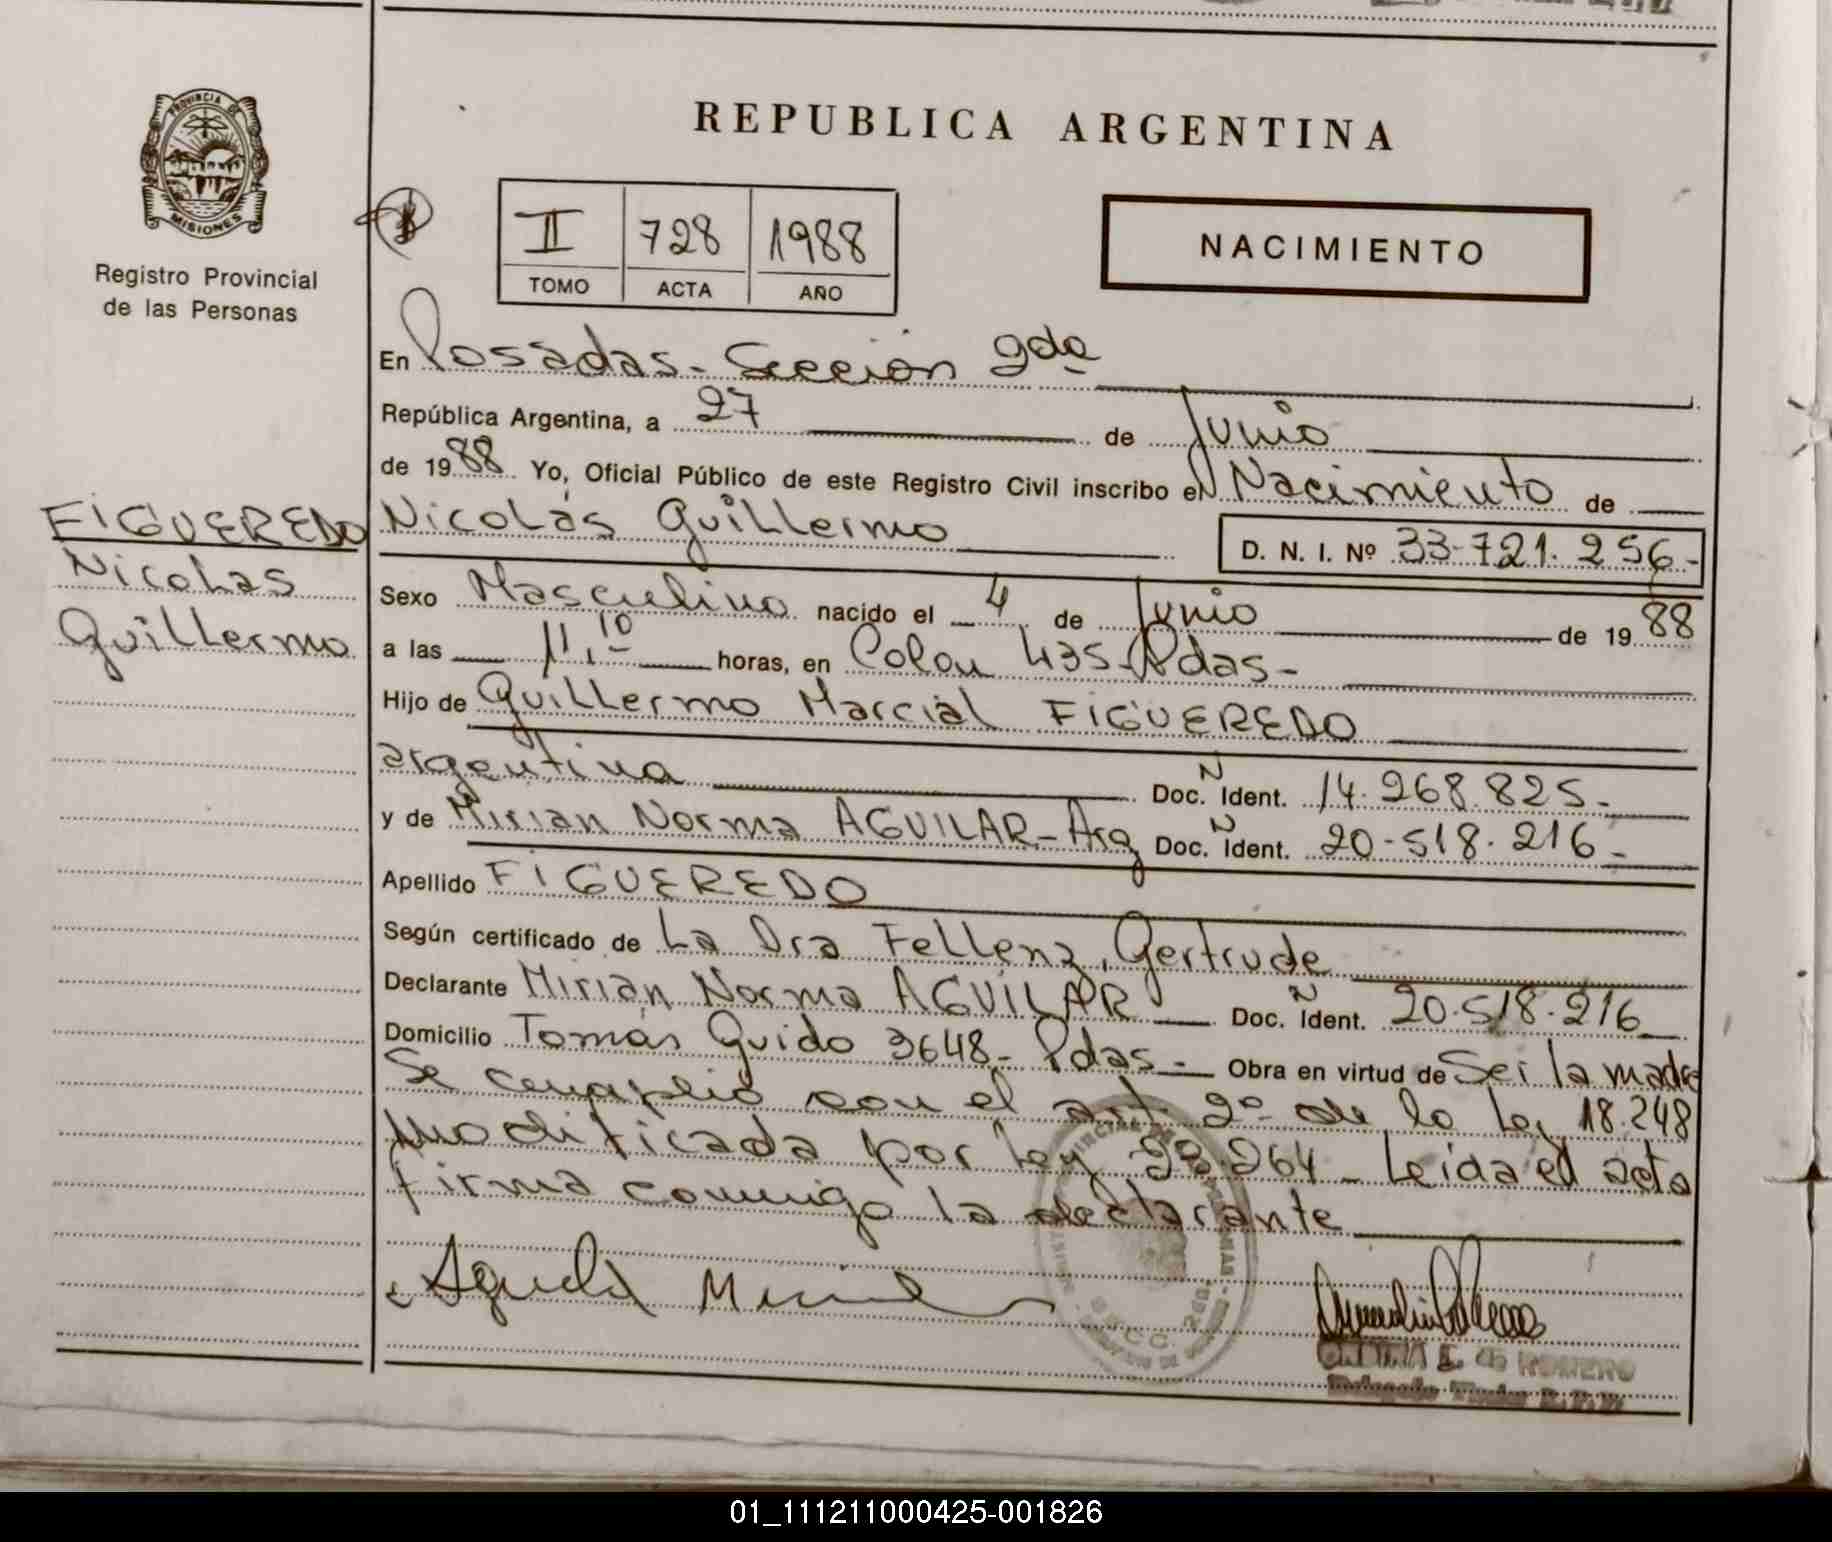 PROVINCIA DE
MISIONES
Registro Provincial
de las Personas
REPUBLICA ARGENTINA
II 728 1988
TOMO ACTA AÑO
NACIMIENTO
En Posadas - Sección 2da
República Argentina, a 27 de Junio
de 1988 Yo, Oficial Público de este Registro Civil inscribo el Nacimiento de
FIGUEREDO
Nicolas
Guillermo
Nicolás Guillermo D. N. I. Nº 33-721.256-
Sexo Masculino nacido el 4 de Junio de 1988
a las 11,10 horas, en Colon 435-Pdas-
Hijo de Guillermo Marcial FIGUEREDO
argentina Doc. N Ident. 14.268.825-
y de Mirian Norma AGUILAR-Arg Doc. N Ident. 20-518.216-
Apellido FIGUEREDO
Según certificado de La Dra Fellenz, Gertrude
Declarante Mirian Norma AGUILAR Doc. N Ident. 20.518.216
Domicilio Tomás Guido 3648- Pdas- Obra en virtud de Ser la madre
Se cumplió con el art. 2º de la Ley 18.248
modificada por Ley 23.264 - Leída el acta
firma conmigo la declarante
E. de ROMERO
01_111211000425-001826